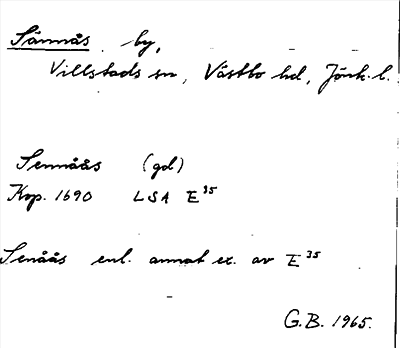 Sännås by,
Villstads sn, Västbo hd, Jönk. l.
Sennåås (gd)
Kop. 1690 LSA E³⁵
Senåås enl. annat ex. av E³⁵
G.B. 1965.